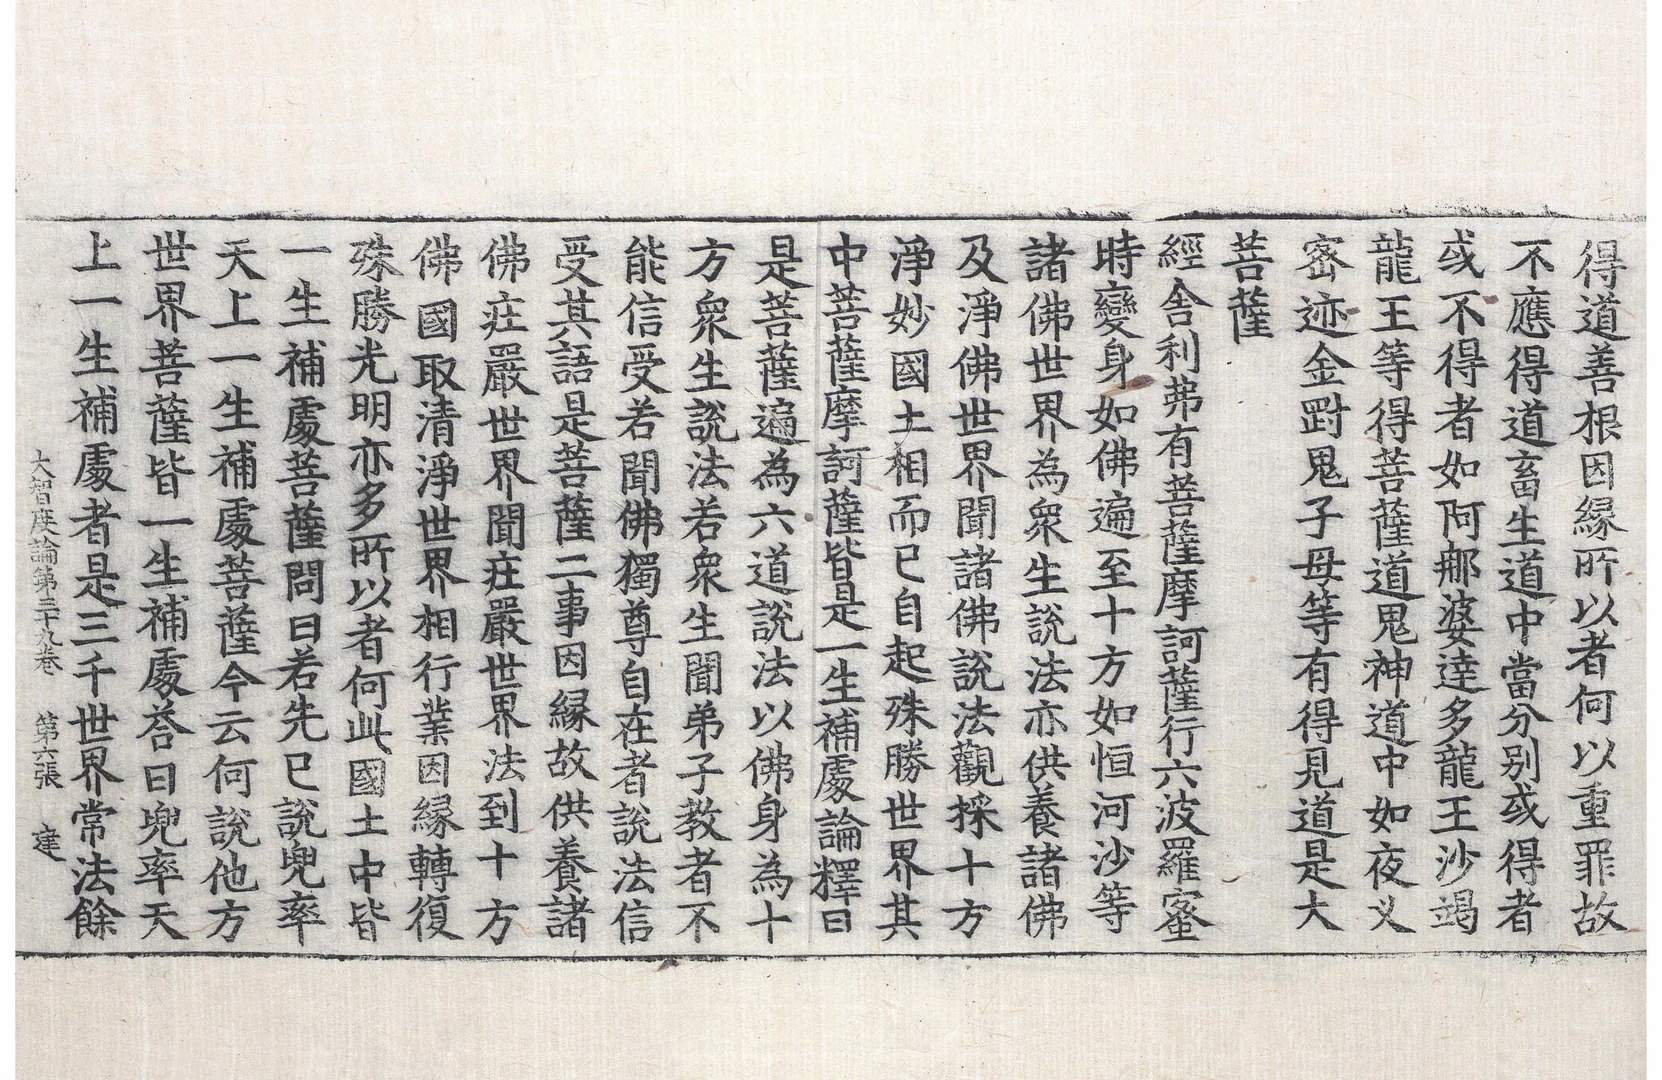 得道善根因縁所以者何以重罪故
不應得道畜生道中當分別或得者
或不得者如阿那婆達多龍王沙竭
龍王等得菩薩道鬼神道中如夜叉
密迹金𠟃鬼子母等有得見道是大
菩薩
經舍利弗有菩薩摩訶薩行六波羅蜜
時變身如佛遍至十方如恒河沙等
諸佛世界為衆生說法亦供養諸佛
及淨佛世界聞諸佛說法觀採十方
淨妙國土相而已自起殊勝世界其
中菩薩摩訶薩皆是一生補處論釋曰
是菩薩遍為六道說法以佛身為十
方衆生說法若衆生聞弟子教者不
能信受若聞佛獨尊自在者說法信
受其語是菩薩二事因縁故供養諸
佛莊嚴世界聞莊嚴世界法到十方
佛國取清淨世界相行業因縁轉復
殊勝光明亦多所以者何此國土中皆
一生補處菩薩問曰若先已說兜率
天上一生補處菩薩今云何說他方
世界菩薩皆一生補處答曰兜率天
上一生補處者是三千世界常法餘
大智度論第三十九卷　第六張　達